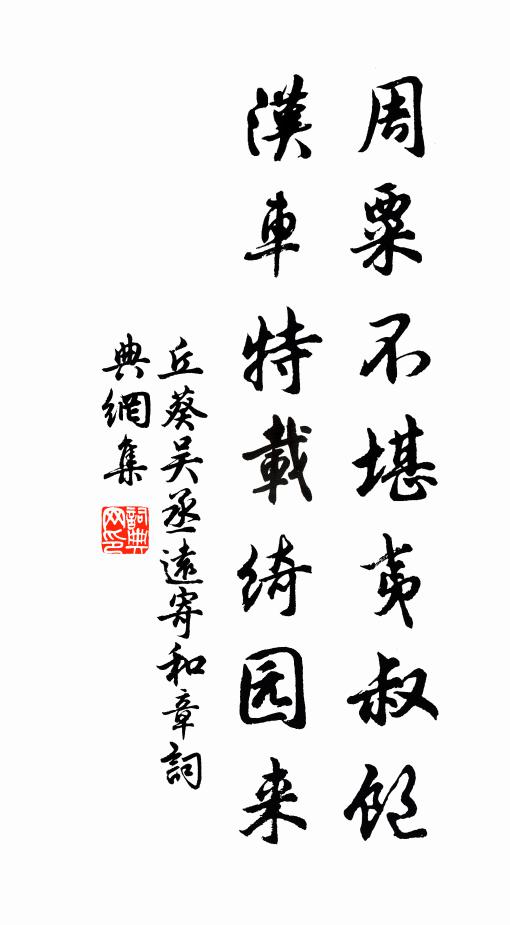 周粟不堪夷叔饱
漢車特載绮园来
丘葵吴丞遠寄和章詞
典網集
詞典網印